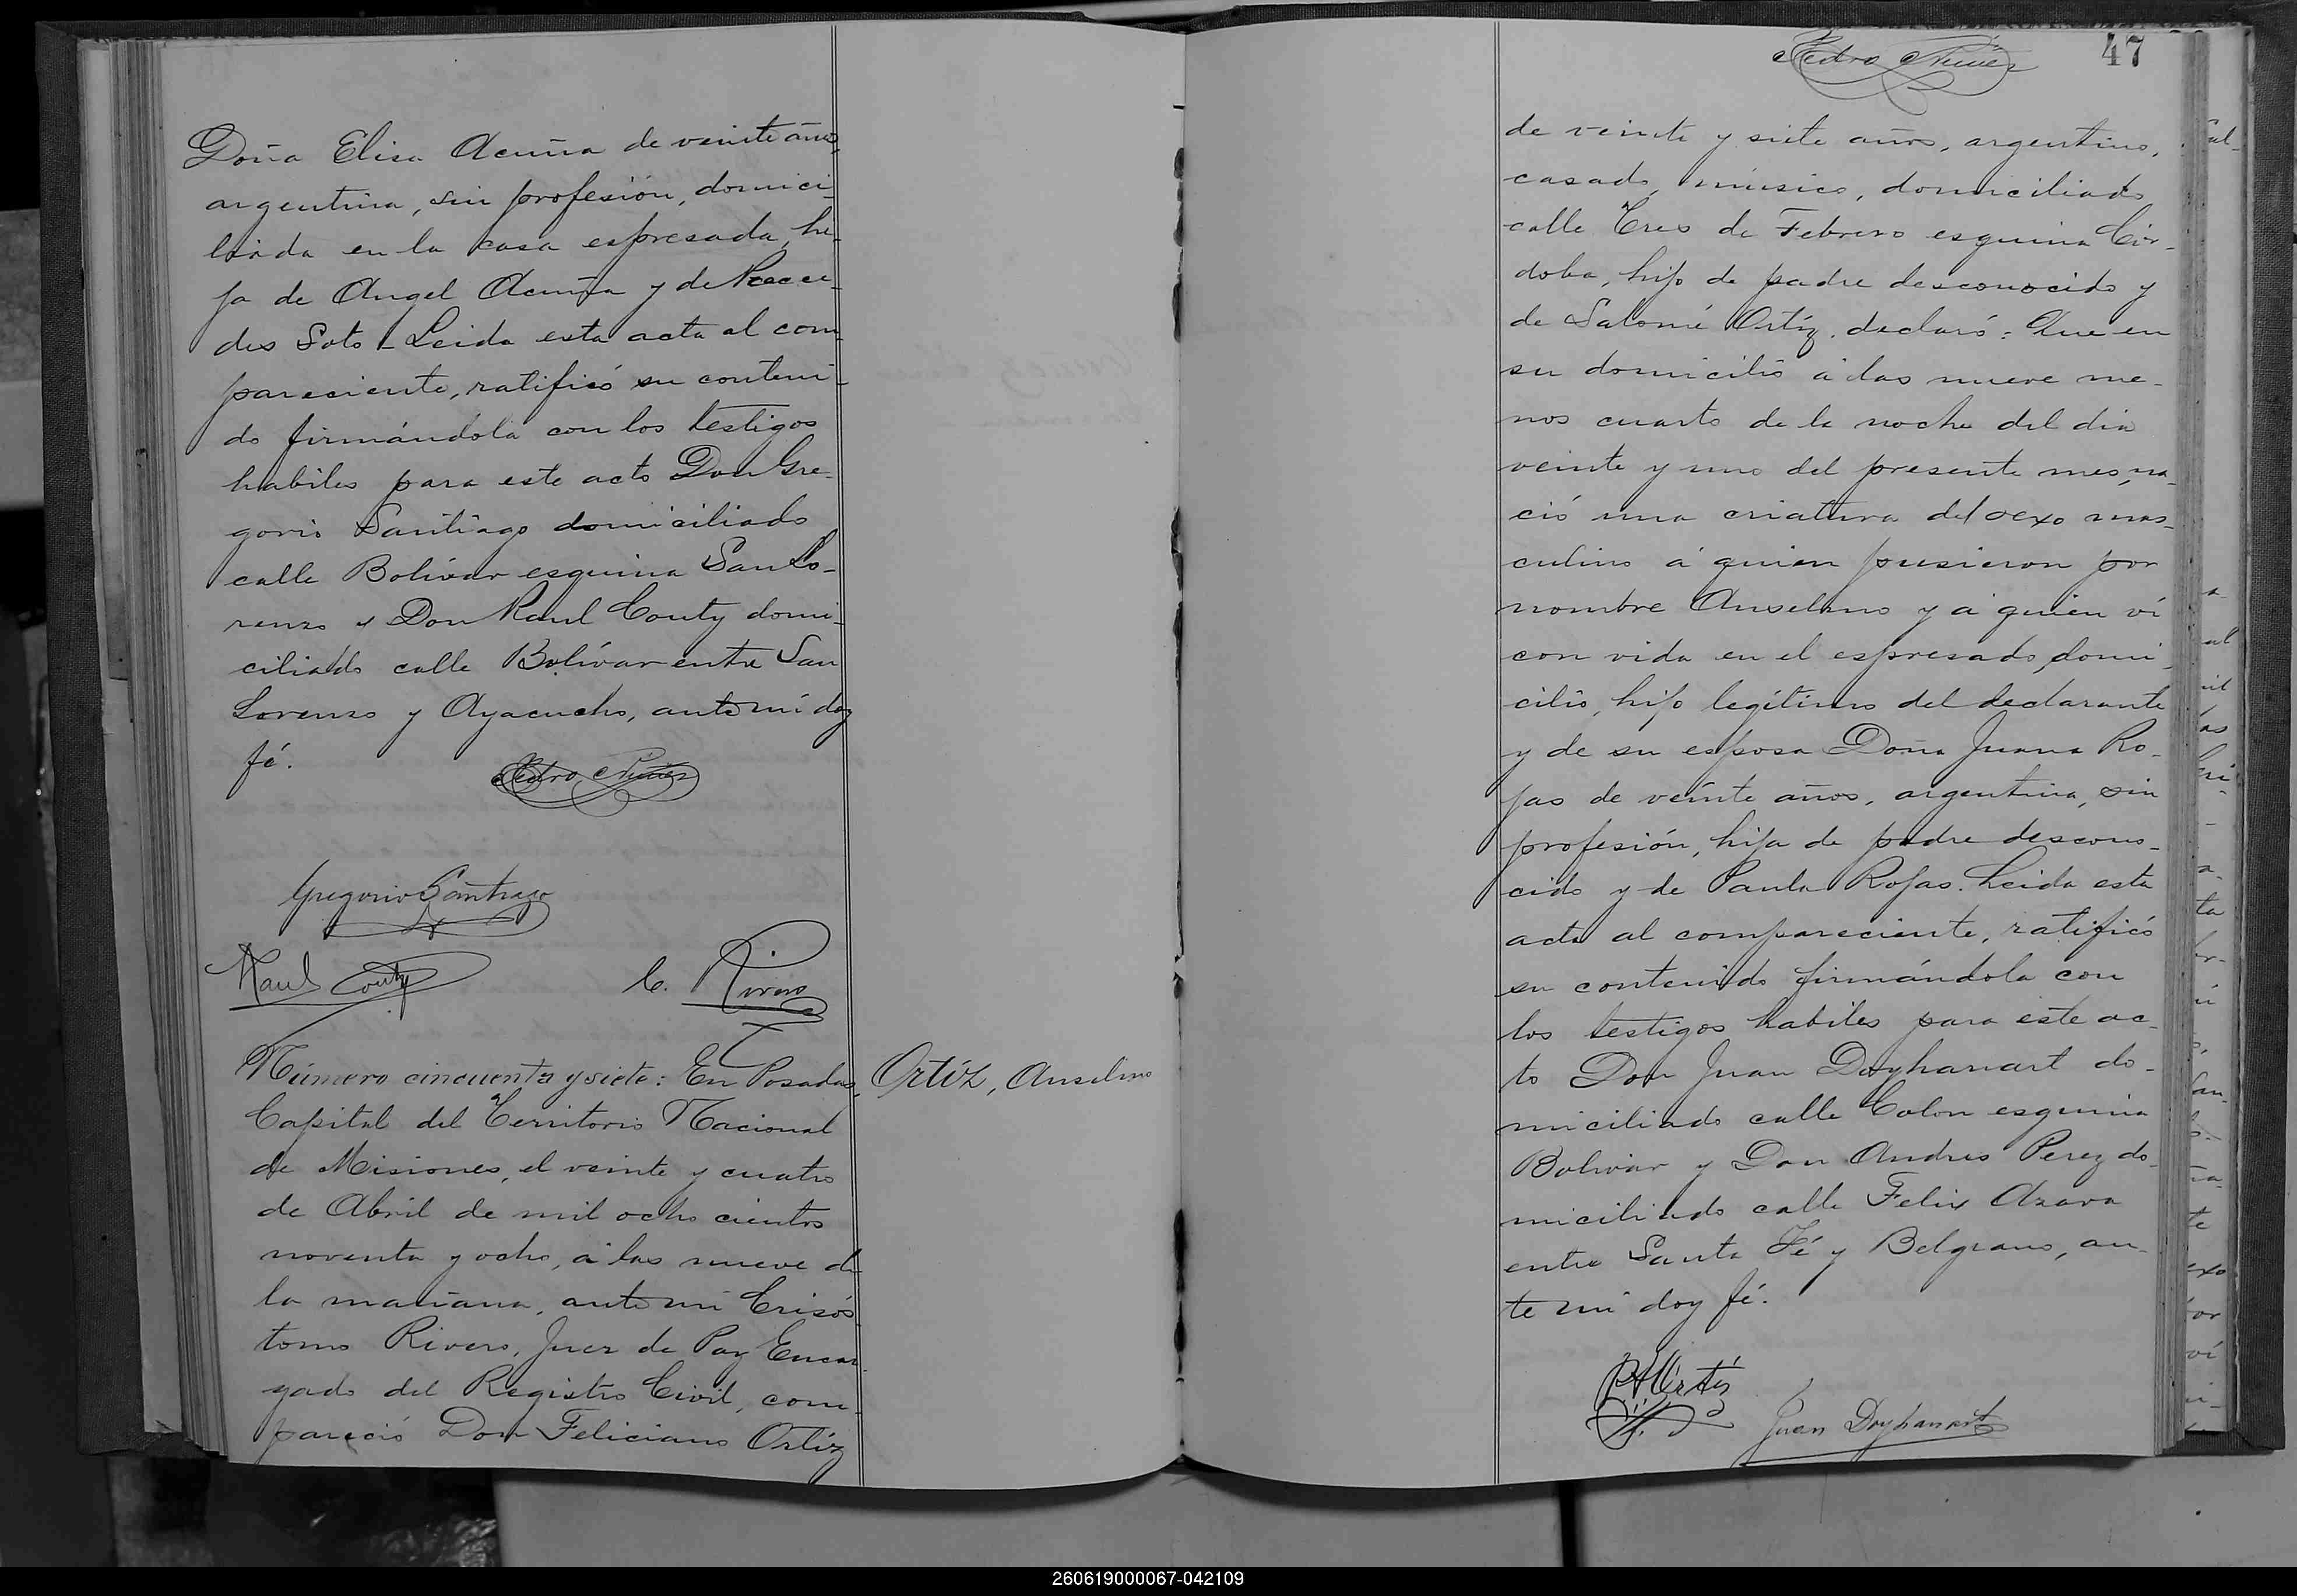 Doña Elisa Acuña de veinte años,
argentina, sin profesión, domici-
liada en la casa espresada, hi-
ja de Angel Acuña y de
des Soto. Leida esta acta al com-
pareciente, ratificó su conteni-
do firmándola con los testigos
habiles para este acto Don Gre-
gorio Santiago domiciliado
calle Bolívar esquina San Lo-
renzo y Don Raul Couty domi-
ciliado calle Bolívar entre San
Lorenzo y Ayacucho, ante mí doy
fé.
Pedro Nuñez
Gregorio Santiago
Raul Couty
C. Rivero
Número cincuenta y siete: En Posadas,
Ortíz, Anselmo
Capital del Territorio Nacional
de Misiones, el veinte y cuatro
de Abril de mil ocho cientos
noventa y ocho, á las nueve de
la mañana, ante mi Crisós
tomo Rivero, Juez de Paz Encar-
gado del Registro Civil, com-
pareció Don Feliciano Ortíz
Pedro Nuñez
47
de veinte y siete años, argentino,
casado, músico, domiciliado
calle Tres de Febrero esquina Cór-
doba, hijo de padre desconocido y
de Salomé Ortíz, declaró: Que en
su domicilio á las nueve me-
nos cuarto de la noche del dia
veinte y uno del presente mes, na-
ció una criatura del sexo mas-
culino á quien pusieron por
nombre Anselmo y á quien ví
con vida en el espresado domi-
cilio, hijo legítimo del declarante
y de su esposa Doña Juana Ro-
jas de veinte años, argentina, sin
profesión, hija de padre descono-
cido y de Paula Rojas. Leida esta
acta al compareciente, ratificó
su contenido firmándola con
los testigos habiles para este ac-
to Don Juan Doyhanart do-
miciliado calle Colon esquina
Bolivar y Don Andres Perez do-
miciliado calle Felix Azara
entre Santa Fé y Belgrano, an-
te mi doy fé.
Ortíz
Juan Doyhanart
260619000067-042109